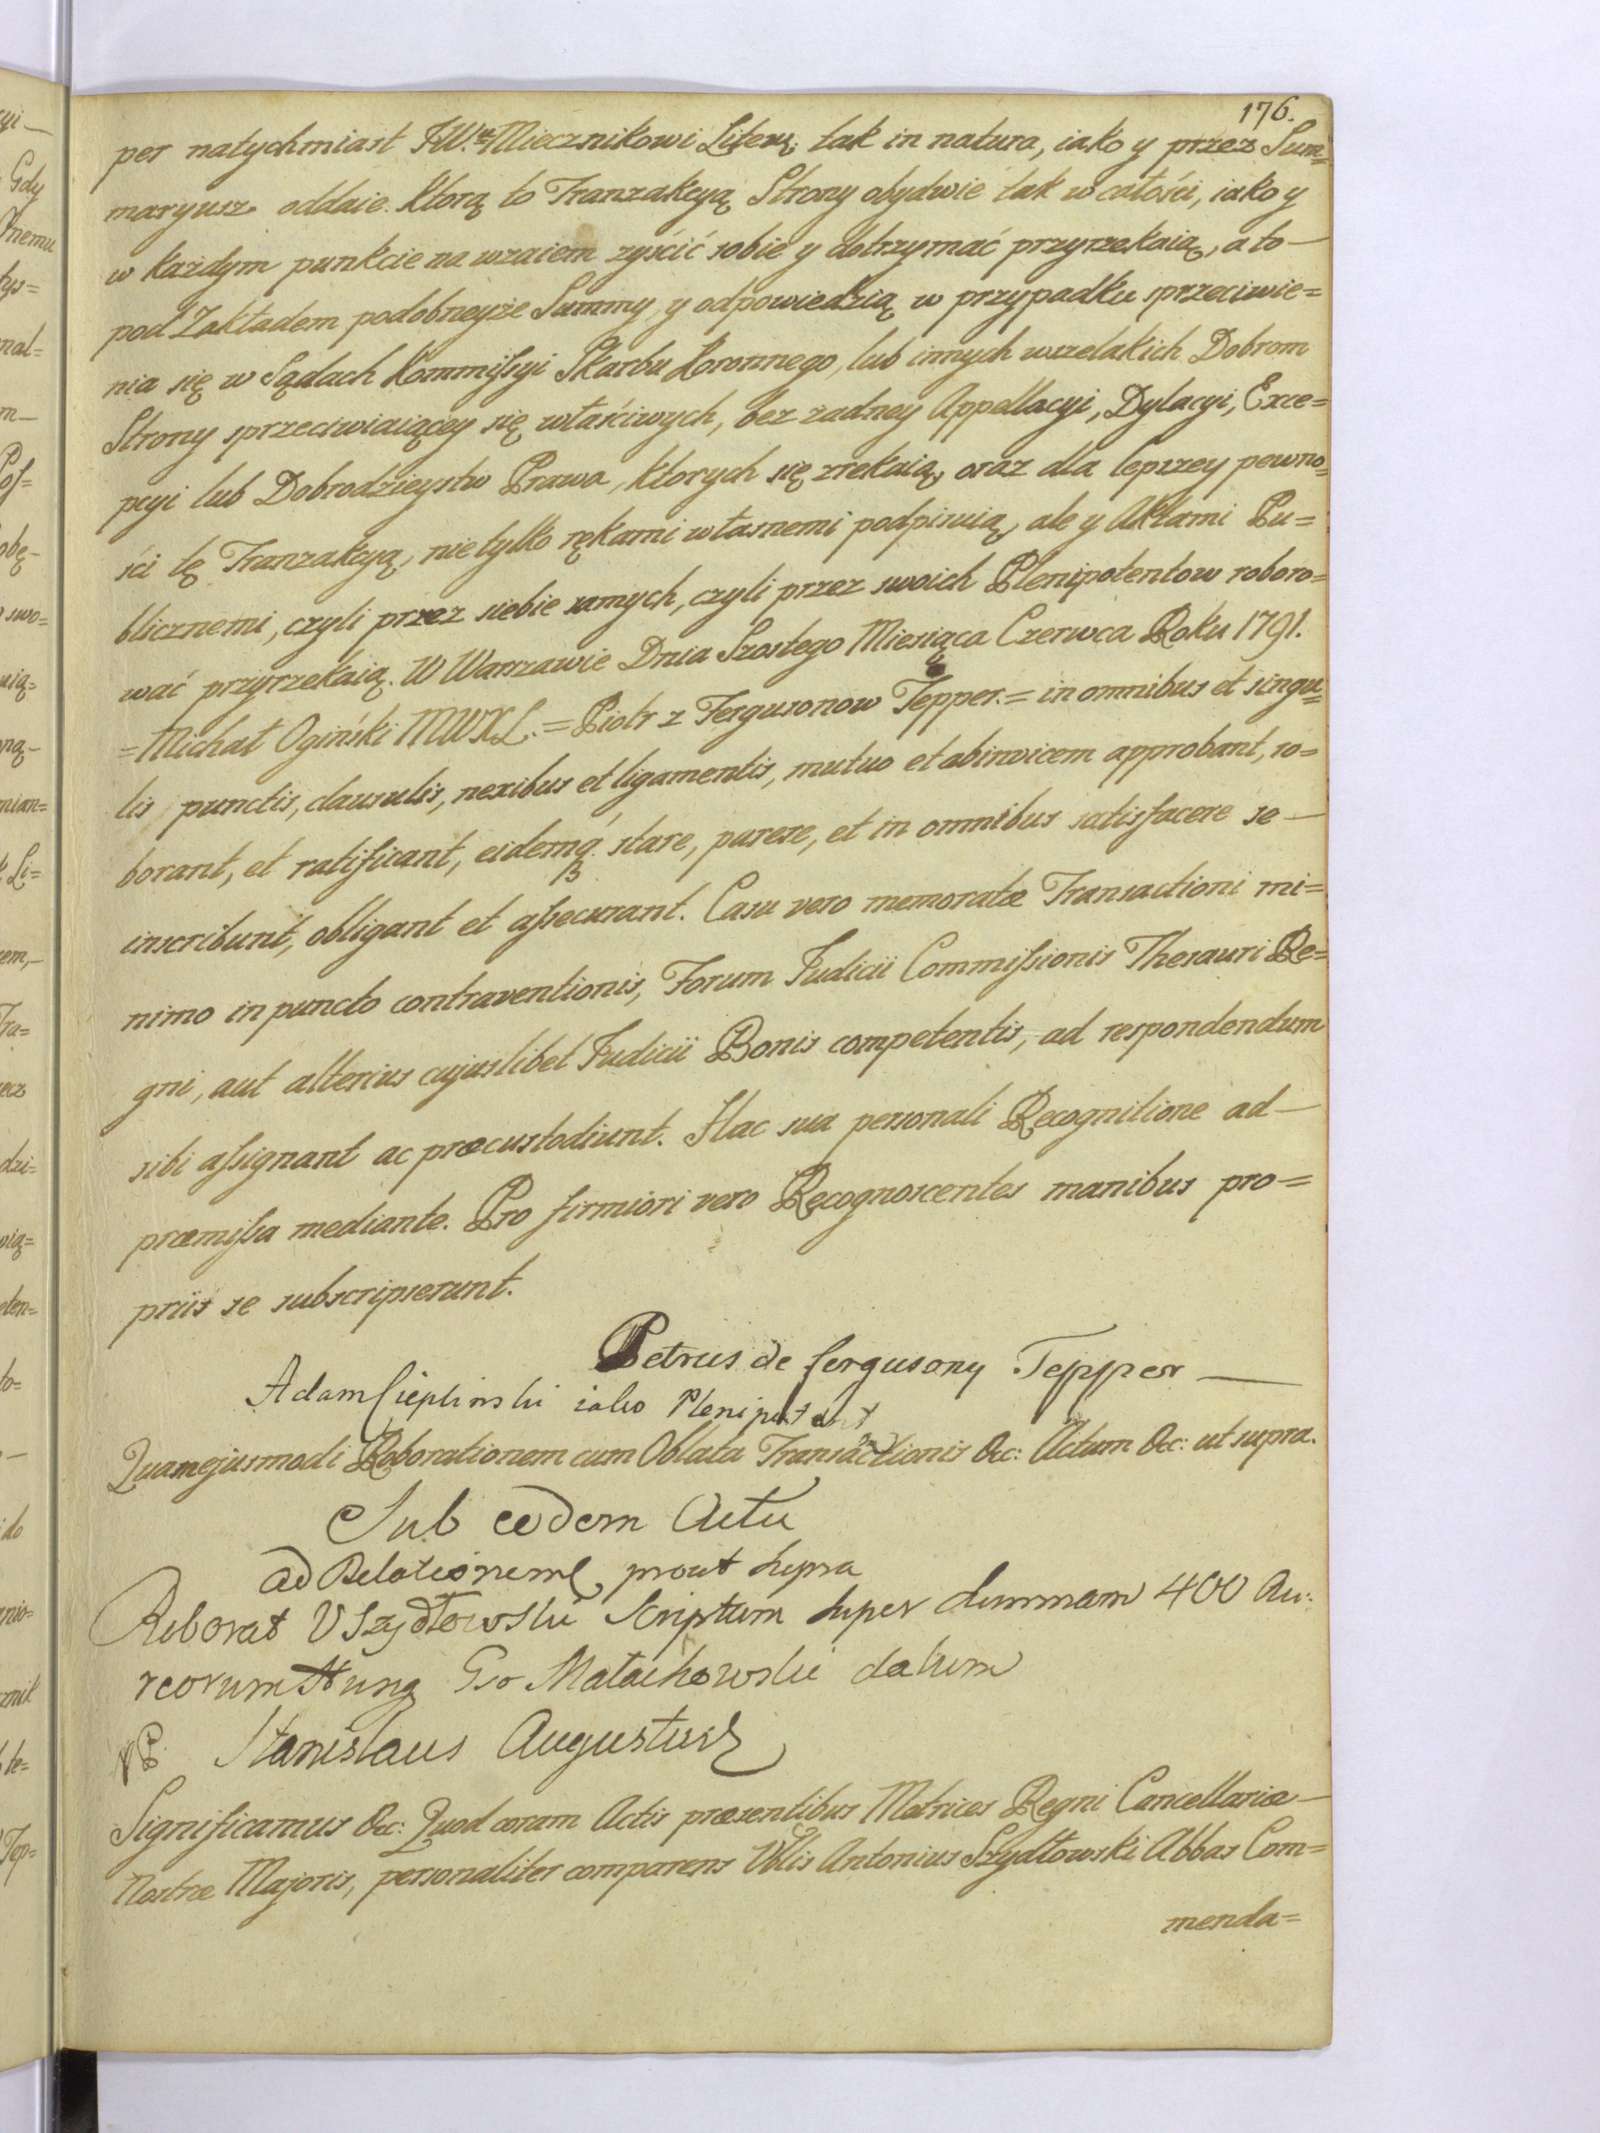 176.
per natychmiast JW.u Miecznikowi Litew: tak in natura, iako y przez Sum=
maryusz oddaie. Którą to Tranzakcyą Strony obydwie tak w całości, iako y
w każdym punkcie na wzaiem zyścić sobie y dotrzymać przyrzekaią, a to —
pod Zakładem podobneyże Summy, y odpowiedzią w przypadku sprzeciwie=
nia się w Sądach Kommifsyi Skarbu Koronnego, lub innych wszelakich Dobrom
Strony sprzeciwiaiącey się właściwych, bez żadney Appellacyi, Dylacyi, Exce=
pcyi lub Dobrodzieystw Prawa, których się zrekaią, oraz dla lepszey pewno=
ści tę Tranzakcyą, nie tylko rękami własnemi podpisuią, ale y Aktami Pu=
blicznemi, czyli przez siebie samych, czyli przez swoich Plenipotentow roboro=
wać przyrzekaią. W Warszawie Dnia Szostego Miesiąca Czerwca Roku 1791.
= Michał Ogiński MWXL. = Piotr z Fergusonow Tepper. = in omnibus et singu=
lis punctis, clausulis, nexibus et ligamentis, mutuo et abinvicem approbant, ro=
borant, et ratificant, eidemq́ stare, parere, et in omnibus satisfacere se —
inscribunt, obligant et afsecurant. Casu vero memoratæ Transactioni mi=
nimo in puncto contraventionis, Forum Judicii Commifsionis Thesauri Re=
gni, aut alterius cujuslibet Judicii Bonis competentis, ad respondendum
sibi afsignant ac præcustodiunt. Hac sua personali Recognitione ad —
præmifsa mediante. Pro firmiori vero Recognoscentes manibus pro=
priis se subscripserunt.
Petrus de fergusony Tepper —
Adam Cieplinski iako Plenipotent
Quam ejusmodi Roborationem cum Oblata Transactionis &c: Actum &c: ut supra.
Sub eodem Actu
ad Relationem prout supra
Roborat V Szydłowski Scriptum super summam 400 Au:
reorum Hung Gso Małachowski datum
Stanislaus Augustus
Significamus &c: Quod coram Actis præsentibus Metrices Regni Cancellariæ —
Nostræ Majoris, personaliter comparens Vblis Antonius Szydłowski Abbas Com=
menda=